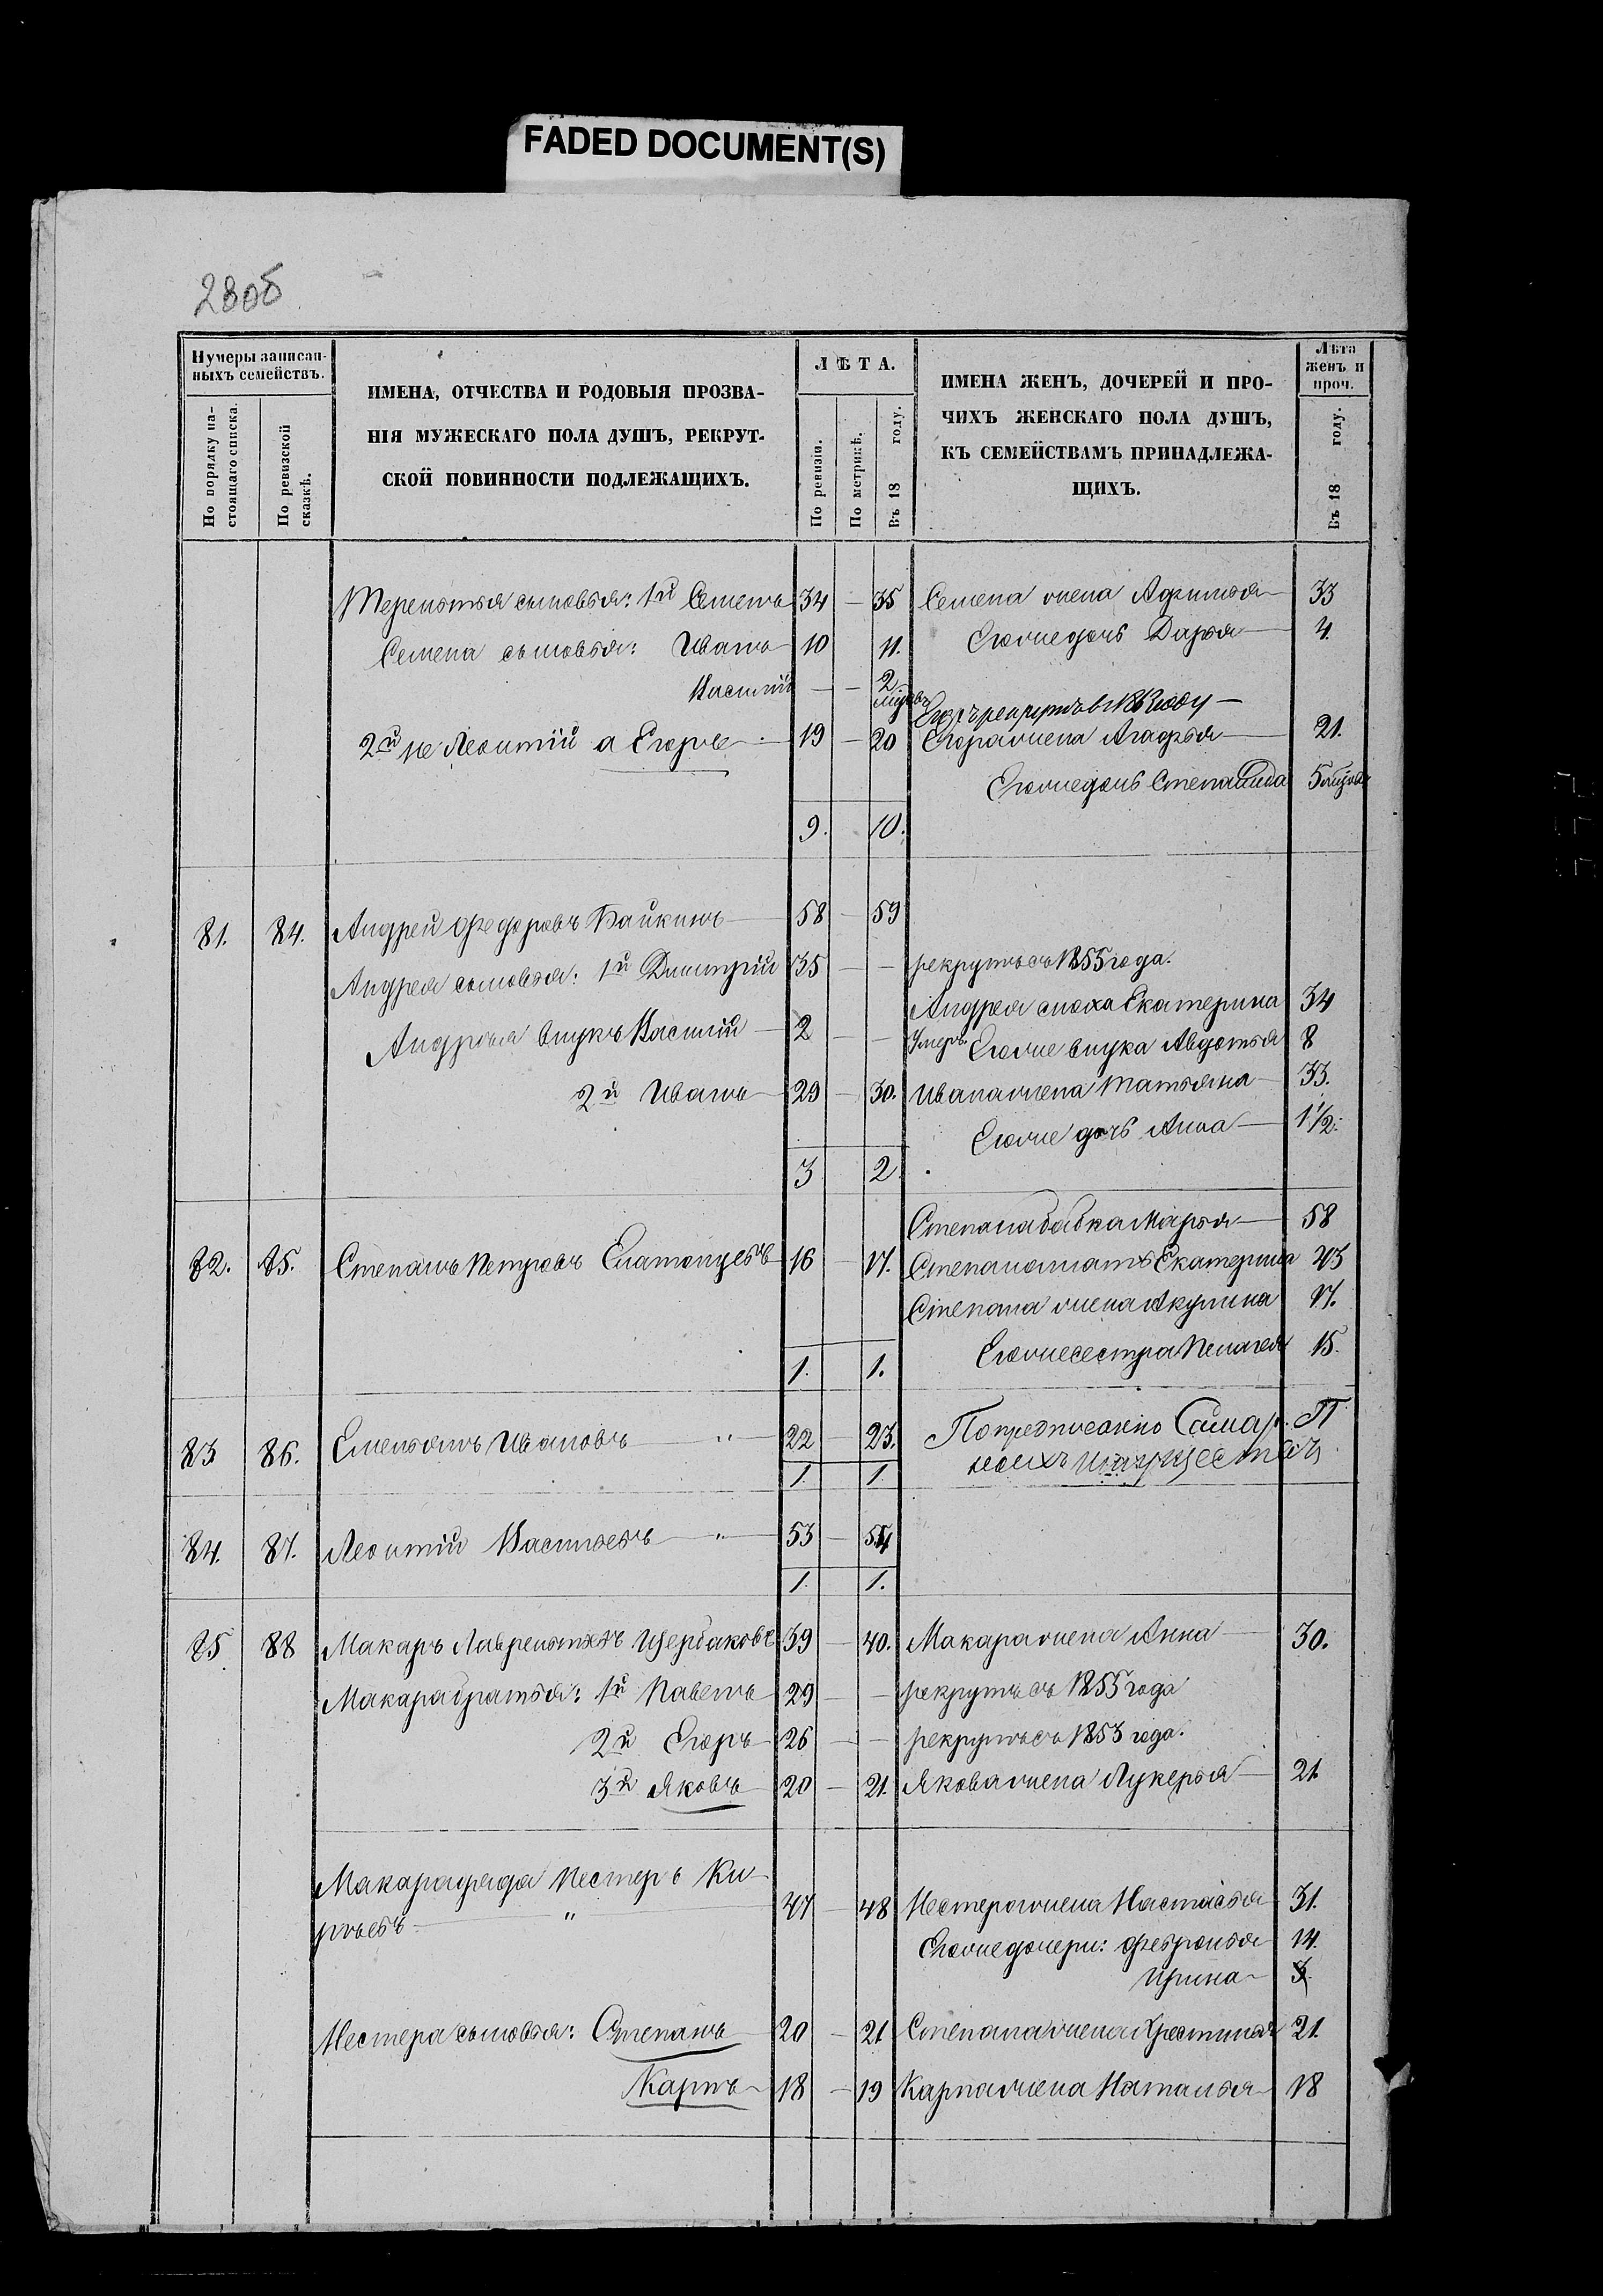 FADED DOCUMENT(S)
280б
Нумеры записан-
ныхъ семействъ.
По порядку на-
стоящаго списка.
По ревизской
сказкѣ.
ИМЕНА, ОТЧЕСТВА И РОДОВЫЯ ПРОЗВА-
НІЯ МУЖЕСКАГО ПОЛА ДУШЪ, РЕКРУТ-
СКОЙ ПОВИННОСТИ ПОДЛЕЖАЩИХЪ.
ЛѢТА.
По ревизіи.
По метрикѣ.
Въ 18 году.
ИМЕНА ЖЕНЪ, ДОЧЕРЕЙ И ПРО-
ЧИХЪ ЖЕНСКАГО ПОЛА ДУШЪ,
КЪ СЕМЕЙСТВАМЪ ПРИНАДЛЕЖА-
ЩИХЪ.
Лѣта
женъ и
проч.
Въ 18 году.
Терентья сыновья: 1й Семенъ 34 — 35 Семена жена Афимья 33
Семена сыновья: Иванъ 10 11. Егоже дочь Дарья 4.
Василій — — 2
рекрутъ в 186 году
2й не Леонтій а Егоръ 19 — 20 Егора жена Агафья 21.
Егоже дочь Степанида 5
9. 10.
81. 84. Андрей Федоровъ Байкинъ 58 — 59
Андрея сыновья: 1й Дмитрій 35 — — рекрутъ съ 1855 года.
Андрея сноха Екатерина 34
Андрея внукъ Василій 2 — — умеръ Егоже внука Авдотья 8
2й Иванъ 29 — 30. Ивана жена Татьяна 33.
Егоже дочь Анна 1 1/2.
3 2.
Степана бабка Марья 58
82. 85. Степанъ Петровъ 16 — 17. Степана мать Екатерина 43
Степана жена Акулина 17.
Егоже сестра Пелагея 15.
1. 1.
83 86. Емельянъ Ивановъ " 22 — 23. По предписанію
1. 1.
84. 87. Леонтій Васильевъ " 53 — 54
1. 1.
85 88 Макаръ Лаврентьевъ Щербаковъ 39 — 40. Макара жена Анна 30.
Макара братья: 1й Павелъ 29 — — рекрутъ съ 1855 года
2й Егоръ 26 — — рекрутъ съ 1853 года.
3й Яковъ 20 — 21. Якова жена Лукерья 21.
Макара дядя Нестеръ Ки-
рѣевъ " 47 — 48 Нестера жена Настасья 31.
Егоже дочери: Февронья 14.
Ирина 3.
Нестера сыновья: Степанъ 20 — 21 Степана жена Хрестинья 21.
Карпъ 18 — 19 Карпа жена Наталья 18